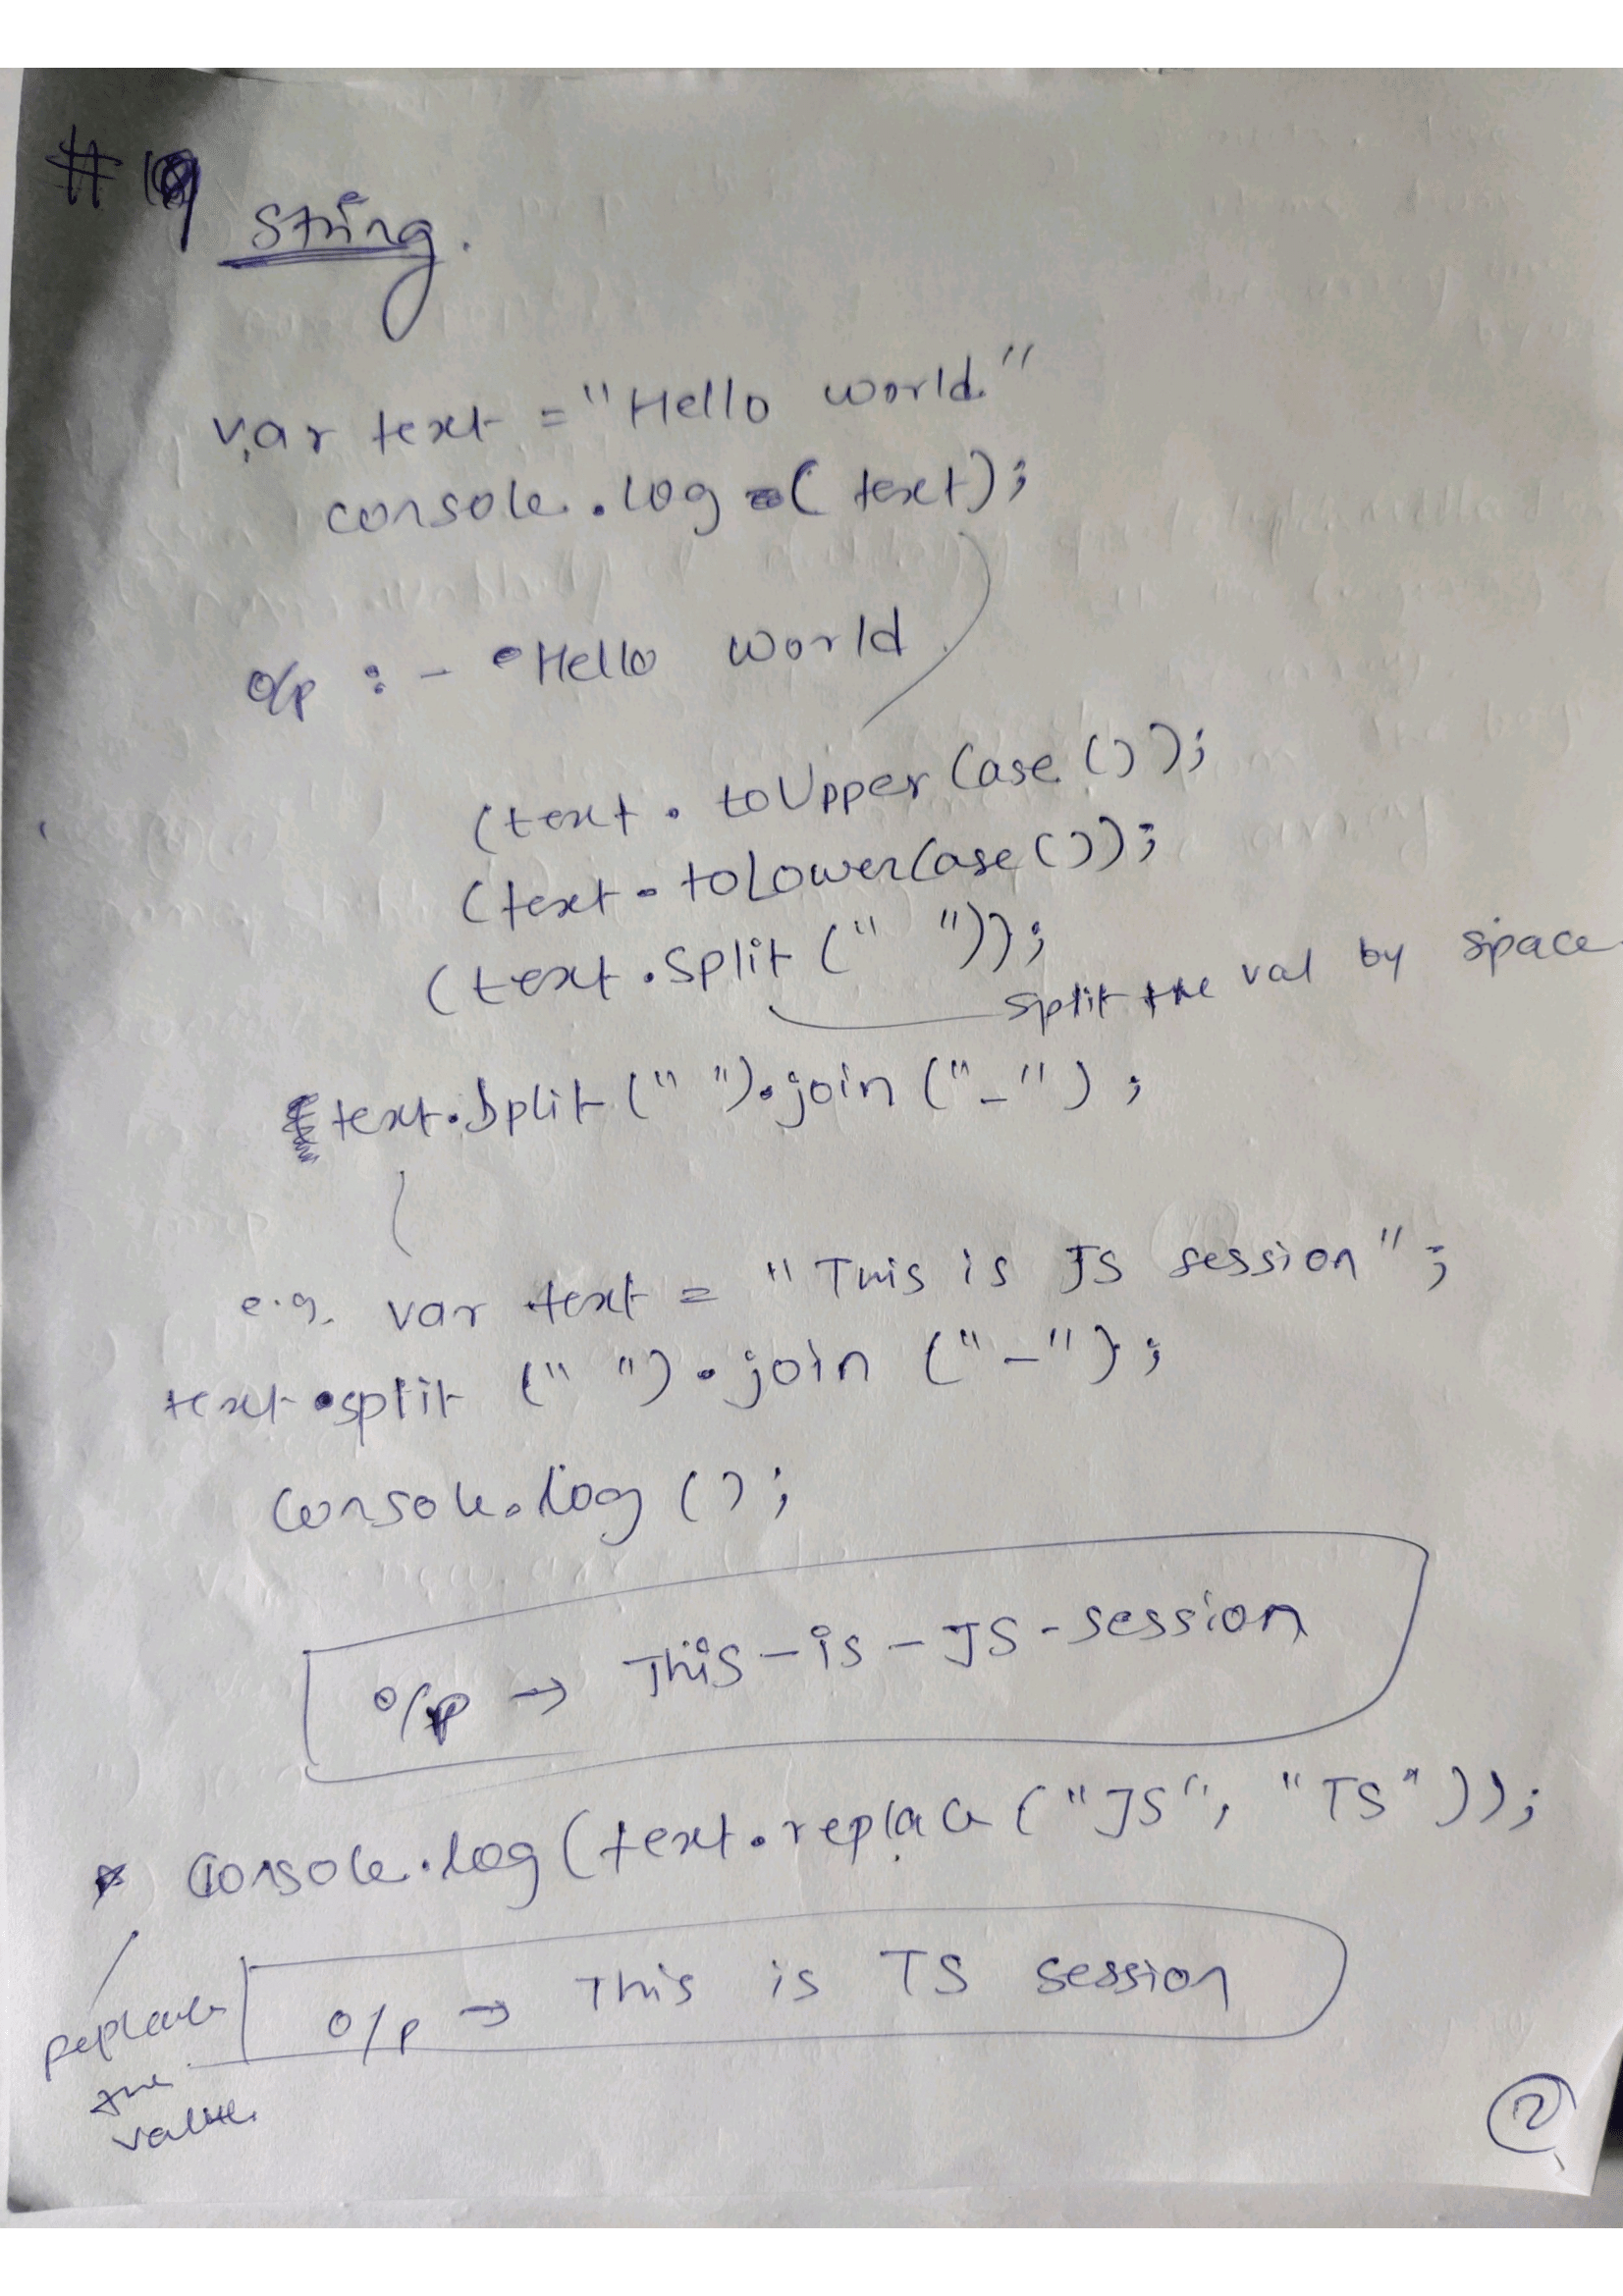 #9 String.
var text = "Hello world."
console.log (text);
o/p :- Hello World
(text.toUpperCase());
(text.toLowerCase());
(text.split(" "));
split the val by space
text.split(" ").join("-");
e.g. var text = "This is JS session";
text.split (" ").join ("-");
console.log();
o/p → This-is-JS-session
* console.log(text.replace("JS", "TS"));
o/p → This is TS session
replace
the
value.
2